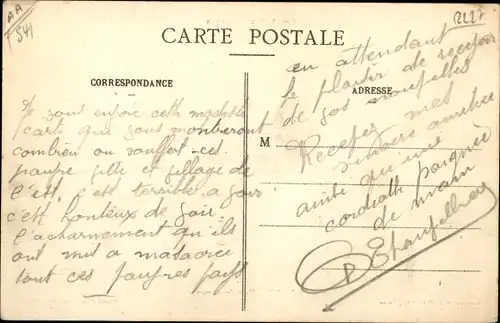 AA
541
2227
CARTE POSTALE
CORRESPONDANCE
ADRESSE
M
Je vous envoie cette modeste
carte qui vous montreront
combien on souffert ces
pauvre ville et village de
l'est. c'est terrible a voir
c'est honteux de voir
l'acharnement qu'ils
ont mit a matacrée
tout ces pauvres pays
en attendant
le plaisir de recevoir
de vos nouvelles
Recever mes
sincère amitiée
ainsi qu'une
cordialle poignée
de main